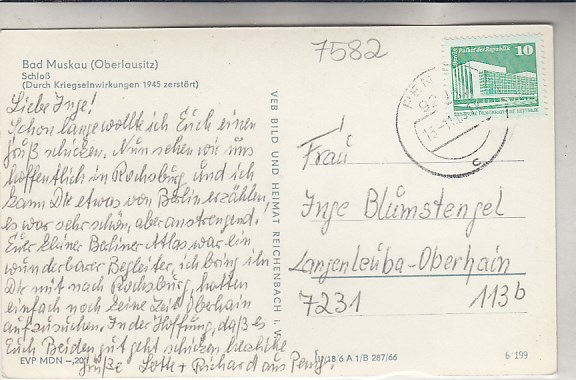 7582
Bad Muskau (Oberlausitz)
Schloß
(Durch Kriegseinwirkungen 1945 zerstört)
Liebe Inge!
Schon lange wollte ich Euch einen
Gruß schicken. Nun sehen wir uns
hoffentlich in Rochsburg und ich
kann Dir etwas von Berlin erzählen,
es war sehr schön, aber anstrengend!
Euer kleiner Berliner Atlas war ein
wunderbarer Begleiter, ich bring ihn
Dir mit nach Rochsburg, hatten
einfach noch keine Zeit Oberhain
aufzusuchen. In der Hoffnung, daß es
Euch Beiden gut geht schicken herzliche
Grüße Lotte + Richard aus Penig.
EVP MDN -,20
VEB BILD UND HEIMAT REICHENBACH I. V.
III/18/6 A 1/B 287/66
6/199
Palast der Republik
10
DEUTSCHE DEMOKRATISCHE REPUBLIK
PEN
Frau
Inge Blumstengel
Langenleuba-Oberhain
7231 113b